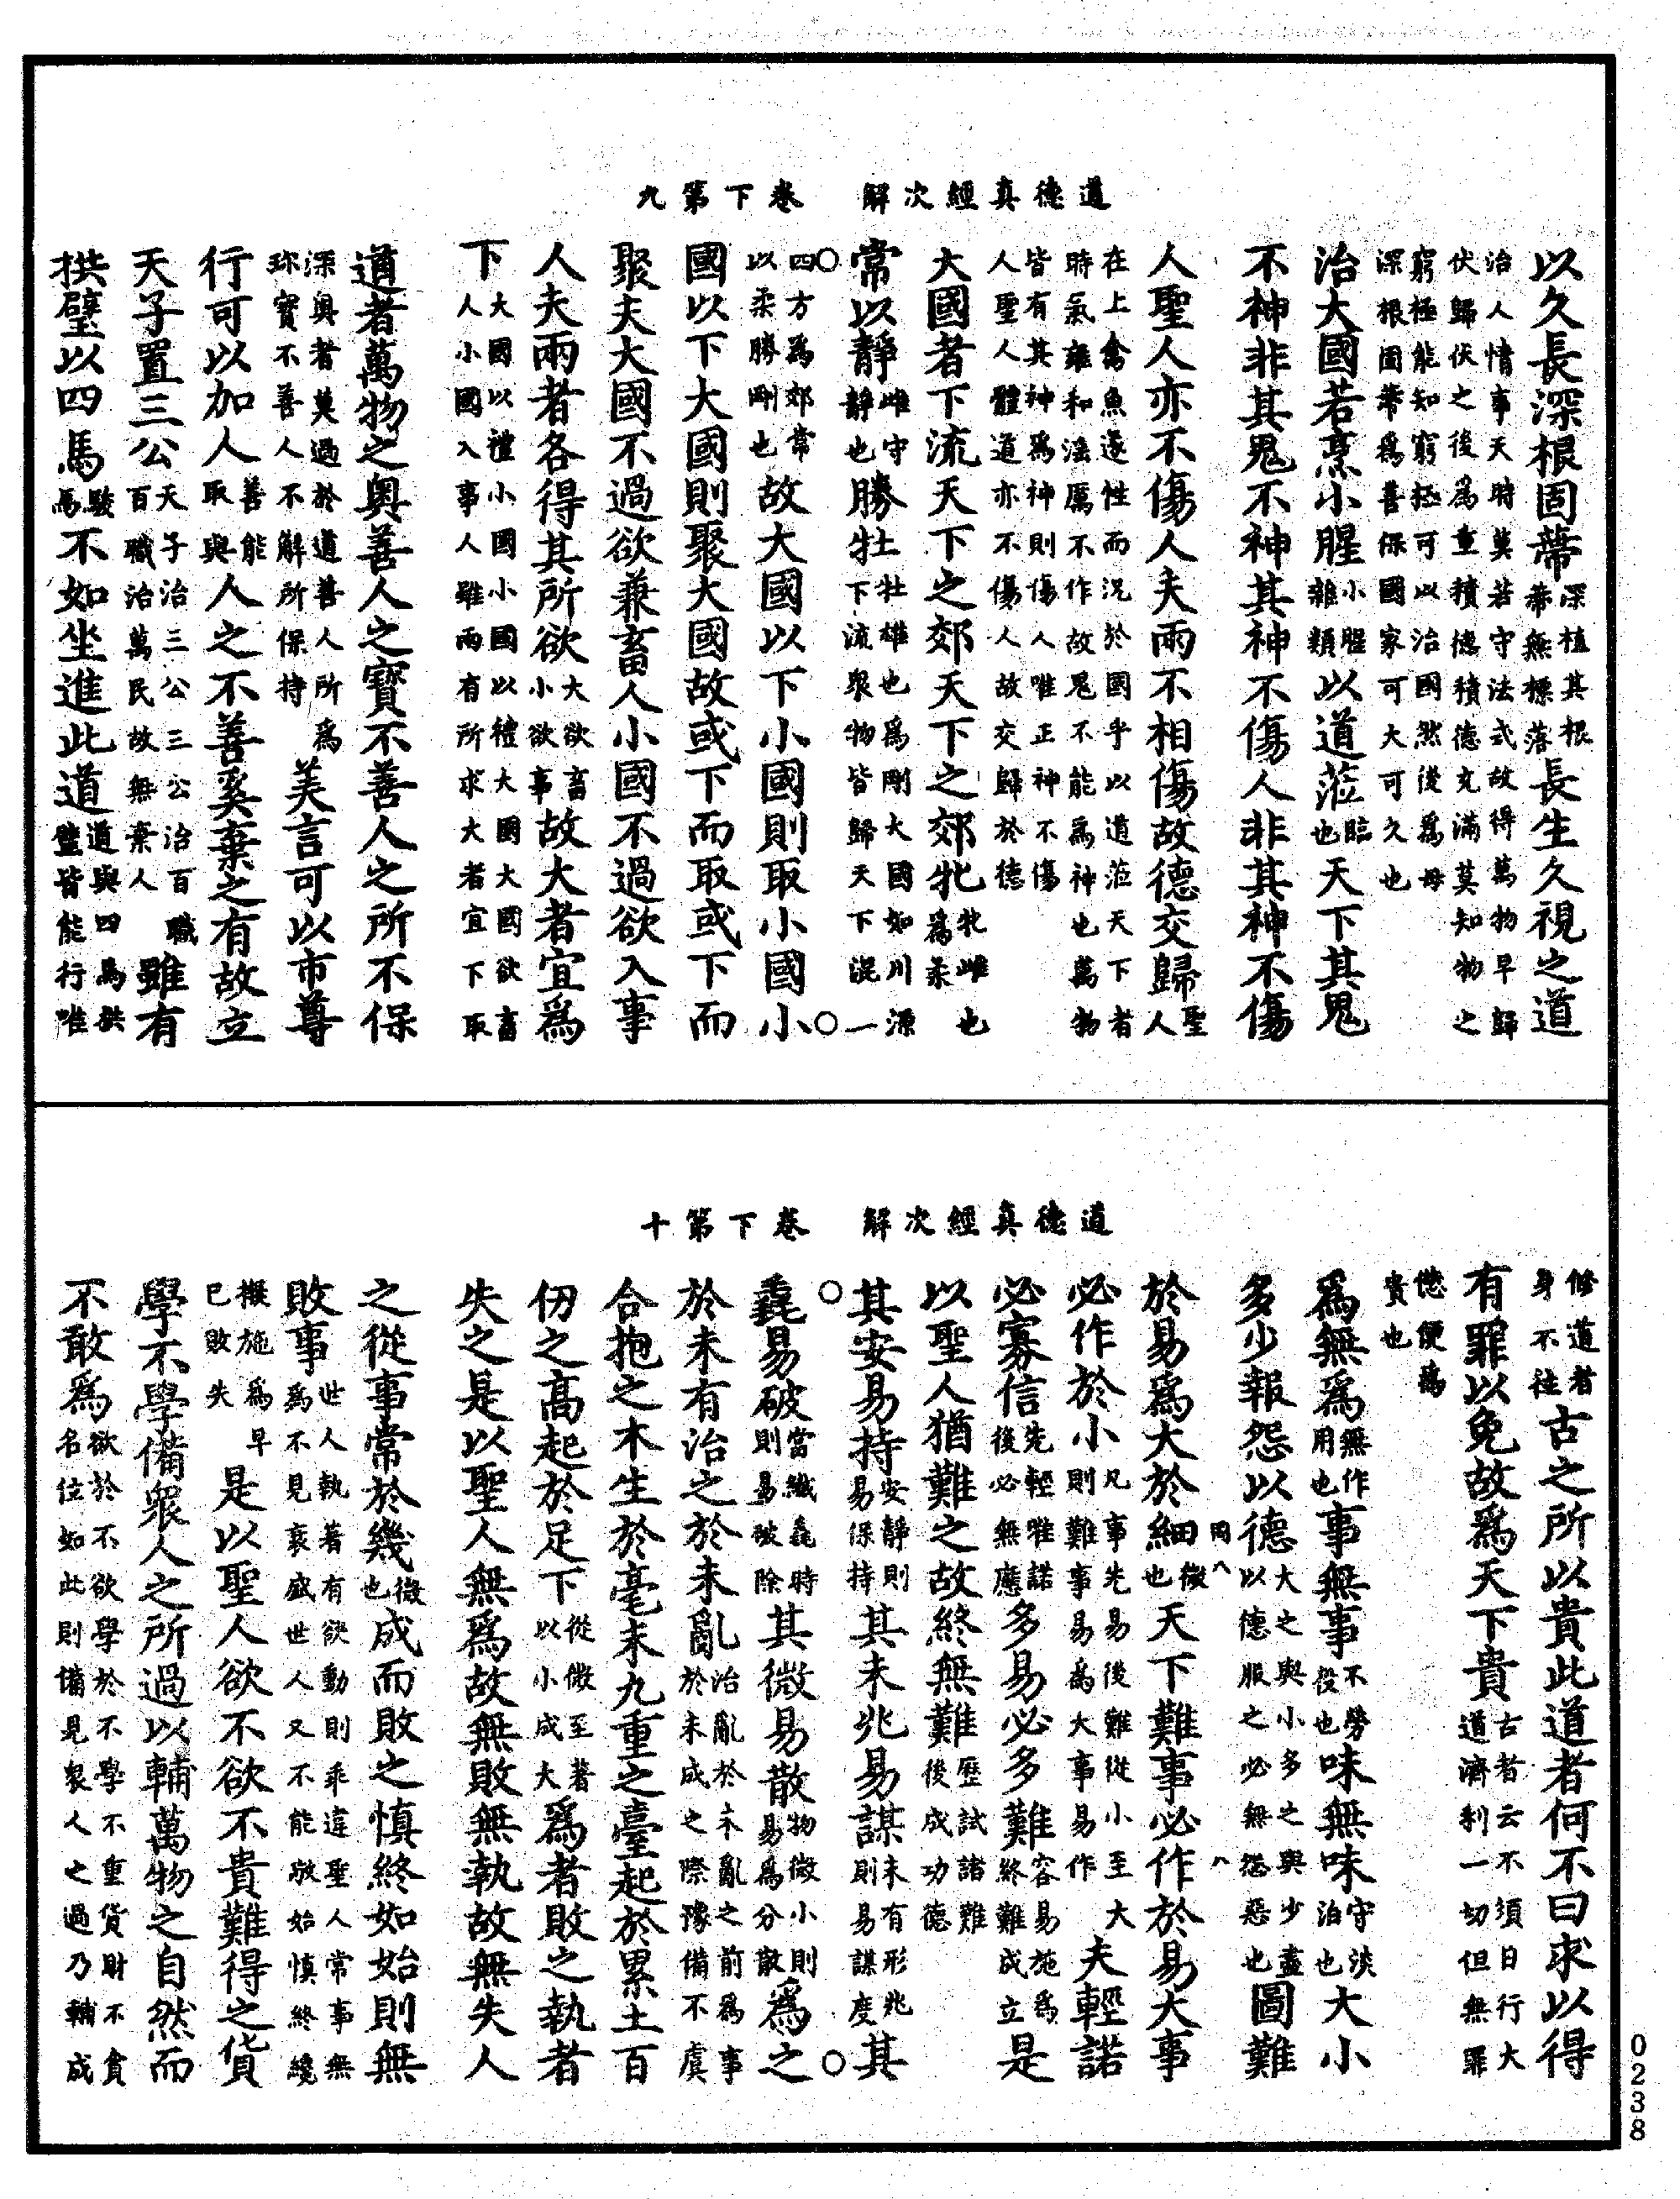 道德真經次解　卷下第九
以久長深根固蔕深植其根蔕無標落長生久視之道
治人情事天時莫若守法式故得萬物早歸伏歸伏之後為重積德積德充滿莫知物之
窮極能知窮極可以治國然後為母深根固蔕為善保國家可大可久也
治大國若烹小腥小腥雜類以道蒞臨也天下其鬼
不神非其鬼不神其神不傷人非其神不傷
人聖人亦不傷人夫兩不相傷故德交歸聖人
在上禽魚遂性而況於國乎以道蒞天下者時氣雍和滛厲不作故鬼不能為神也萬物
皆有其神為神則傷人唯正神不傷人聖人體道亦不傷人故交歸於德
大國者下流天下之郊天下之郊牝牝雌也為柔
常以靜雌守靜也勝牡牡雄也為剛大國如川源下流眾物皆歸天下混一
四方為郊常以柔勝剛也故大國以下小國則取小國小
國以下大國則聚大國故或下而取或下而
聚夫大國不過欲兼畜人小國不過欲入事
人夫兩者各得其所欲大欲畜小欲事故大者宜為
下大國以禮小國小國以禮大國大國欲畜人小國入事人雖兩有所求大者宜下取
道者萬物之奧善人之寶不善人之所不保
深奧者莫過於道善人所為珎寶不善人不解所保持美言可以市尊
行可以加人善能取與人之不善奚棄之有故立
天子置三公天子治三公三公治百職百職治萬民故無棄人雖有
拱璧以四馬駿馬不如坐進此道道與四馬拱璧皆能行唯
道德真經次解　卷下第十
修道者身不往古之所以貴此道者何不曰求以得
有罪以免故為天下貴古者云不須日行大道濟利一切但無罪
愆便為貴也
為無為無作用也事無事不勞役也味無味守淡治也大小
多少報怨以德大之與小多之與少盡以德服之必無怨惡也圖難
於易為大於細微也天下難事必作於易大事
必作於小凡事先易後難從小至大則難事易為大事易作夫輕諾
必寡信先輕唯諾後必無應多易必多難容易施為終難成立是
以聖人猶難之故終無難歷試諸難後成功德
其安易持安靜則易保持其未兆易謀未有形兆則易謀度其
毳易破當纖毳時則易破除其微易散物微小則易為分散為之
於未有治之於未亂治亂於未亂之前為事於未成之際豫備不虞
合抱之木生於毫末九重之臺起於累土百
仞之高起於足下從微至著以小成大為者敗之執者
失之是以聖人無為故無敗無執故無失人
之從事常於幾微也成而敗之慎終如始則無
敗事世人執著有欲動則乖違聖人常事無為不見衰盛世人又不能於始慎終纔
擬施為早已敗失是以聖人欲不欲不貴難得之貨
學不學備眾人之所過以輔萬物之自然而
不敢為欲於不欲學於不學不重貨財不貪名位如此則備見眾人之過乃輔成
0238